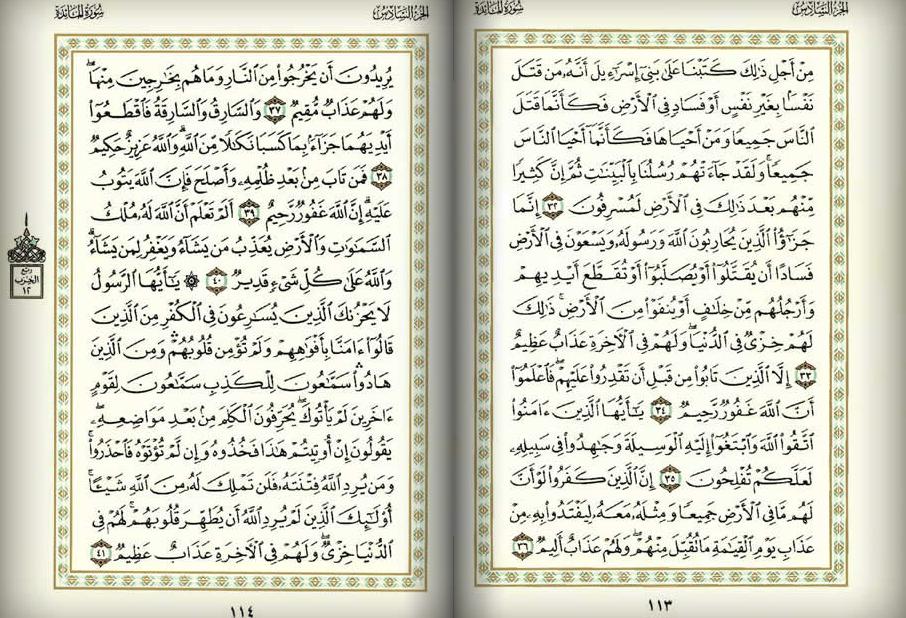 الجزء السادس
سورة المائدة
مِنْ أَجْلِ ذَٰلِكَ كَتَبْنَا عَلَىٰ بَنِىٓ إِسْرَٰٓءِيلَ أَنَّهُۥ مَن قَتَلَ
نَفْسًۢا بِغَيْرِ نَفْسٍ أَوْ فَسَادٍ فِى ٱلْأَرْضِ فَكَأَنَّمَا قَتَلَ
ٱلنَّاسَ جَمِيعًا وَمَنْ أَحْيَاهَا فَكَأَنَّمَآ أَحْيَا ٱلنَّاسَ
جَمِيعًا ۚ وَلَقَدْ جَآءَتْهُمْ رُسُلُنَا بِٱلْبَيِّنَٰتِ ثُمَّ إِنَّ كَثِيرًا
مِّنْهُم بَعْدَ ذَٰلِكَ فِى ٱلْأَرْضِ لَمُسْرِفُونَ ٣٢ إِنَّمَا
جَزَٰٓؤُا۟ ٱلَّذِينَ يُحَارِبُونَ ٱللَّهَ وَرَسُولَهُۥ وَيَسْعَوْنَ فِى ٱلْأَرْضِ
فَسَادًا أَن يُقَتَّلُوٓا۟ أَوْ يُصَلَّبُوٓا۟ أَوْ تُقَطَّعَ أَيْدِيهِمْ
وَأَرْجُلُهُم مِّنْ خِلَٰفٍ أَوْ يُنفَوْا۟ مِنَ ٱلْأَرْضِ ۚ ذَٰلِكَ
لَهُمْ خِزْىٌ فِى ٱلدُّنْيَا ۖ وَلَهُمْ فِى ٱلْءَاخِرَةِ عَذَابٌ عَظِيمٌ
٣٣ إِلَّا ٱلَّذِينَ تَابُوا۟ مِن قَبْلِ أَن تَقْدِرُوا۟ عَلَيْهِمْ ۖ فَٱعْلَمُوٓا۟
أَنَّ ٱللَّهَ غَفُورٌ رَّحِيمٌ ٣٤ يَٰٓأَيُّهَا ٱلَّذِينَ ءَامَنُوا۟
ٱتَّقُوا۟ ٱللَّهَ وَٱبْتَغُوٓا۟ إِلَيْهِ ٱلْوَسِيلَةَ وَجَٰهِدُوا۟ فِى سَبِيلِهِۦ
لَعَلَّكُمْ تُفْلِحُونَ ٣٥ إِنَّ ٱلَّذِينَ كَفَرُوا۟ لَوْ أَنَّ
لَهُم مَّا فِى ٱلْأَرْضِ جَمِيعًا وَمِثْلَهُۥ مَعَهُۥ لِيَفْتَدُوا۟ بِهِۦ مِنْ
عَذَابِ يَوْمِ ٱلْقِيَٰمَةِ مَا تُقُبِّلَ مِنْهُمْ ۖ وَلَهُمْ عَذَابٌ أَلِيمٌ ٣٦
١١٣
الجزء السادس
سورة المائدة
يُرِيدُونَ أَن يَخْرُجُوا۟ مِنَ ٱلنَّارِ وَمَا هُم بِخَٰرِجِينَ مِنْهَا ۖ
وَلَهُمْ عَذَابٌ مُّقِيمٌ ٣٧ وَٱلسَّارِقُ وَٱلسَّارِقَةُ فَٱقْطَعُوٓا۟
أَيْدِيَهُمَا جَزَآءًۢ بِمَا كَسَبَا نَكَٰلًا مِّنَ ٱللَّهِ ۗ وَٱللَّهُ عَزِيزٌ حَكِيمٌ
٣٨ فَمَن تَابَ مِنۢ بَعْدِ ظُلْمِهِۦ وَأَصْلَحَ فَإِنَّ ٱللَّهَ يَتُوبُ
عَلَيْهِ ۗ إِنَّ ٱللَّهَ غَفُورٌ رَّحِيمٌ ٣٩ أَلَمْ تَعْلَمْ أَنَّ ٱللَّهَ لَهُۥ مُلْكُ
ٱلسَّمَٰوَٰتِ وَٱلْأَرْضِ يُعَذِّبُ مَن يَشَآءُ وَيَغْفِرُ لِمَن يَشَآءُ ۗ
وَٱللَّهُ عَلَىٰ كُلِّ شَىْءٍ قَدِيرٌ ٤٠ ۞ يَٰٓأَيُّهَا ٱلرَّسُولُ
لَا يَحْزُنكَ ٱلَّذِينَ يُسَٰرِعُونَ فِى ٱلْكُفْرِ مِنَ ٱلَّذِينَ
قَالُوٓا۟ ءَامَنَّا بِأَفْوَٰهِهِمْ وَلَمْ تُؤْمِن قُلُوبُهُمْ ۛ وَمِنَ ٱلَّذِينَ
هَادُوا۟ ۛ سَمَّٰعُونَ لِلْكَذِبِ سَمَّٰعُونَ لِقَوْمٍ
ءَاخَرِينَ لَمْ يَأْتُوكَ ۖ يُحَرِّفُونَ ٱلْكَلِمَ مِنۢ بَعْدِ مَوَاضِعِهِۦ ۖ
يَقُولُونَ إِنْ أُوتِيتُمْ هَٰذَا فَخُذُوهُ وَإِن لَّمْ تُؤْتَوْهُ فَٱحْذَرُوا۟ ۚ
وَمَن يُرِدِ ٱللَّهُ فِتْنَتَهُۥ فَلَن تَمْلِكَ لَهُۥ مِنَ ٱللَّهِ شَيْـًٔا ۚ
أُو۟لَٰٓئِكَ ٱلَّذِينَ لَمْ يُرِدِ ٱللَّهُ أَن يُطَهِّرَ قُلُوبَهُمْ ۚ لَهُمْ فِى
ٱلدُّنْيَا خِزْىٌ ۖ وَلَهُمْ فِى ٱلْءَاخِرَةِ عَذَابٌ عَظِيمٌ ٤١
ربع
الحزب
١٢
١١٤